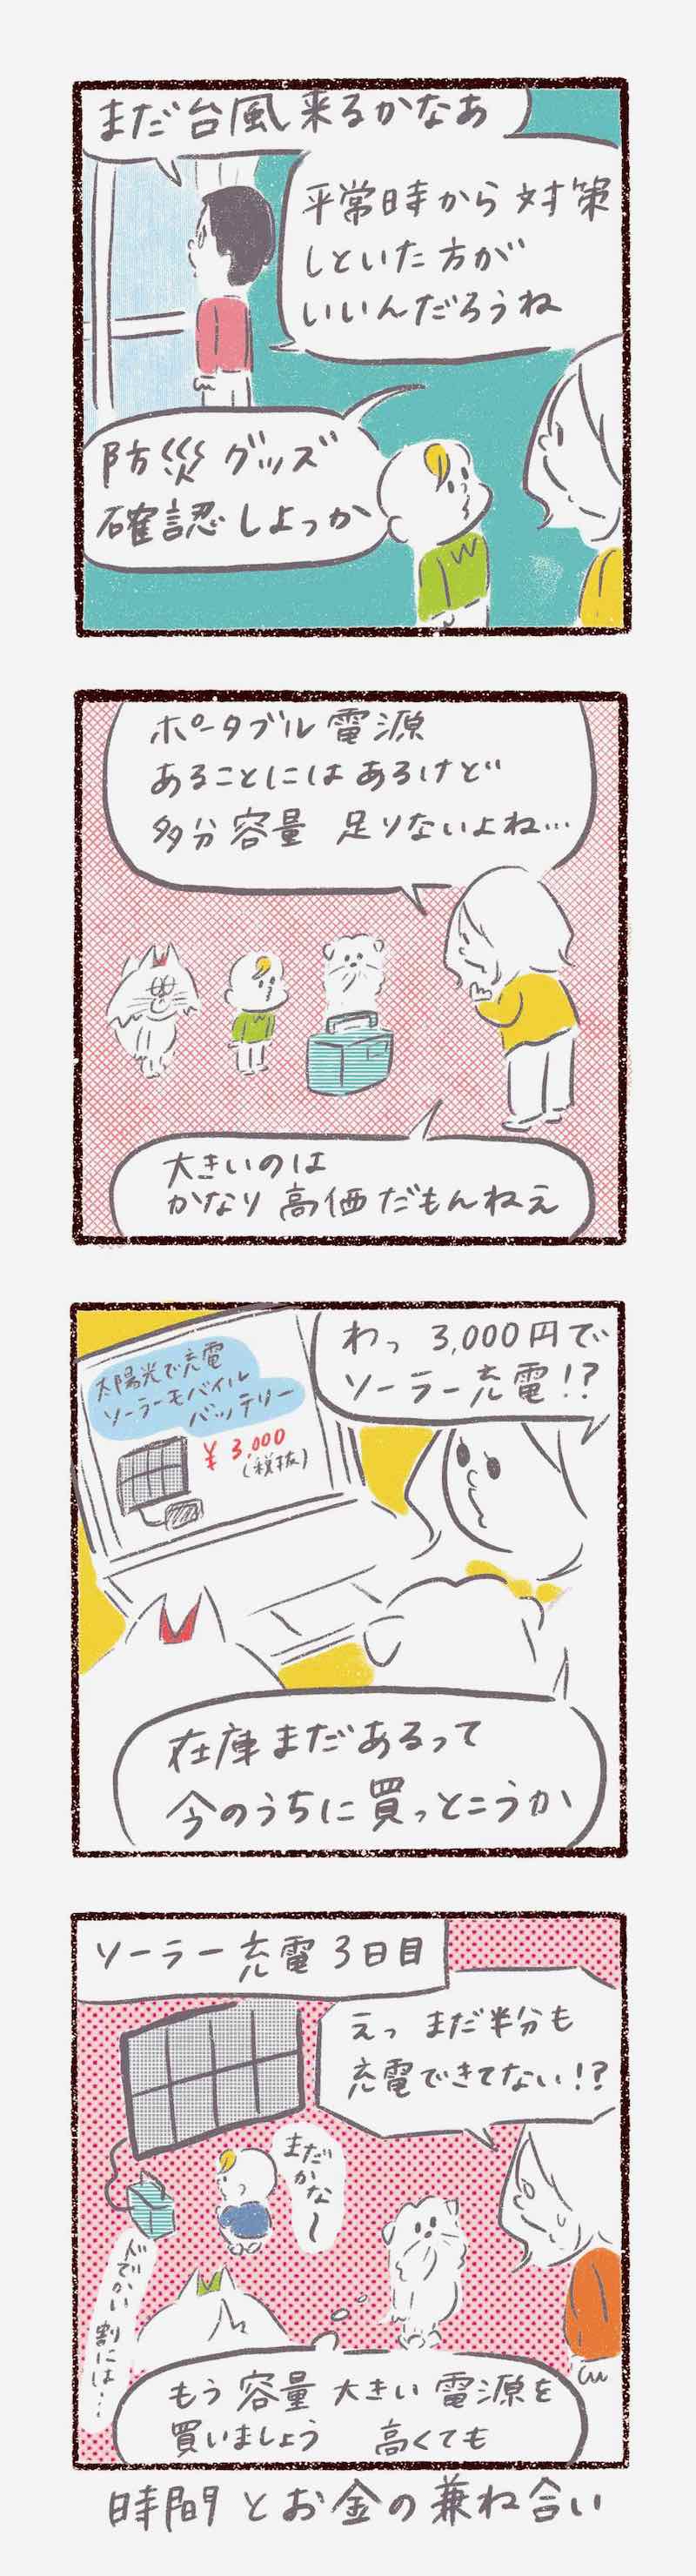 まだ台風来るかなあ
平常時から対策
しといた方が
いいんだろうね
防災グッズ
確認しよっか
ポータブル電源
あることにはあるけど
多分容量 足りないよね…
大きいのは
かなり高価だもんねえ
わっ 3,000円で
ソーラー充電!?
太陽光で充電
ソーラーモバイル
バッテリー
¥3,000
(税抜)
在庫まだあるって
今のうちに買っとこうか
ソーラー充電3日目
えっ まだ半分も
充電できてない!?
まだ
かな〜
ドでかい割には…
もう容量大きい電源を
買いましょう 高くても
時間とお金の兼ね合い